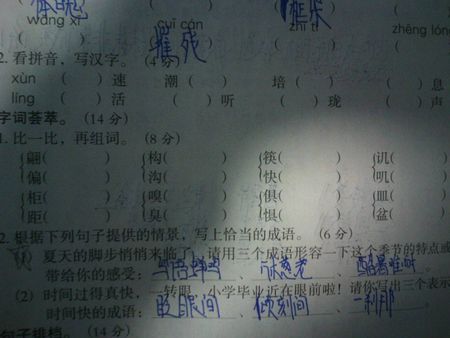 wǎng xī cuī cán zhēng lóng
摧残
2. 看拼音,写汉字。(4分)
xùn ( )速 潮( ) 培( ) ( )息
líng ( )活 ( )听 ( )珑 ( )声
字词荟萃。(14分)
1. 比一比,再组词。(8分)
翩( ) 构( ) 筷( ) 讥( )
偏( ) 沟( ) 快( ) 叽( )
柜( ) 嗅( ) 俱( ) 皿( )
距( ) 臭( ) 惧( ) 盆( )
2. 根据下列句子提供的情景,写上恰当的成语。(6分)
夏天的脚步悄悄来临了,请用三个成语形容一下这个季节的特点或
带给你的感受: 、 、 酷暑难耐。
(2) 时间过得真快,一转眼,小学毕业近在眼前啦!请你写出三个表示
时间快的成语:眨眼间、倾刻间、一刹那。
句子排档。(14分)